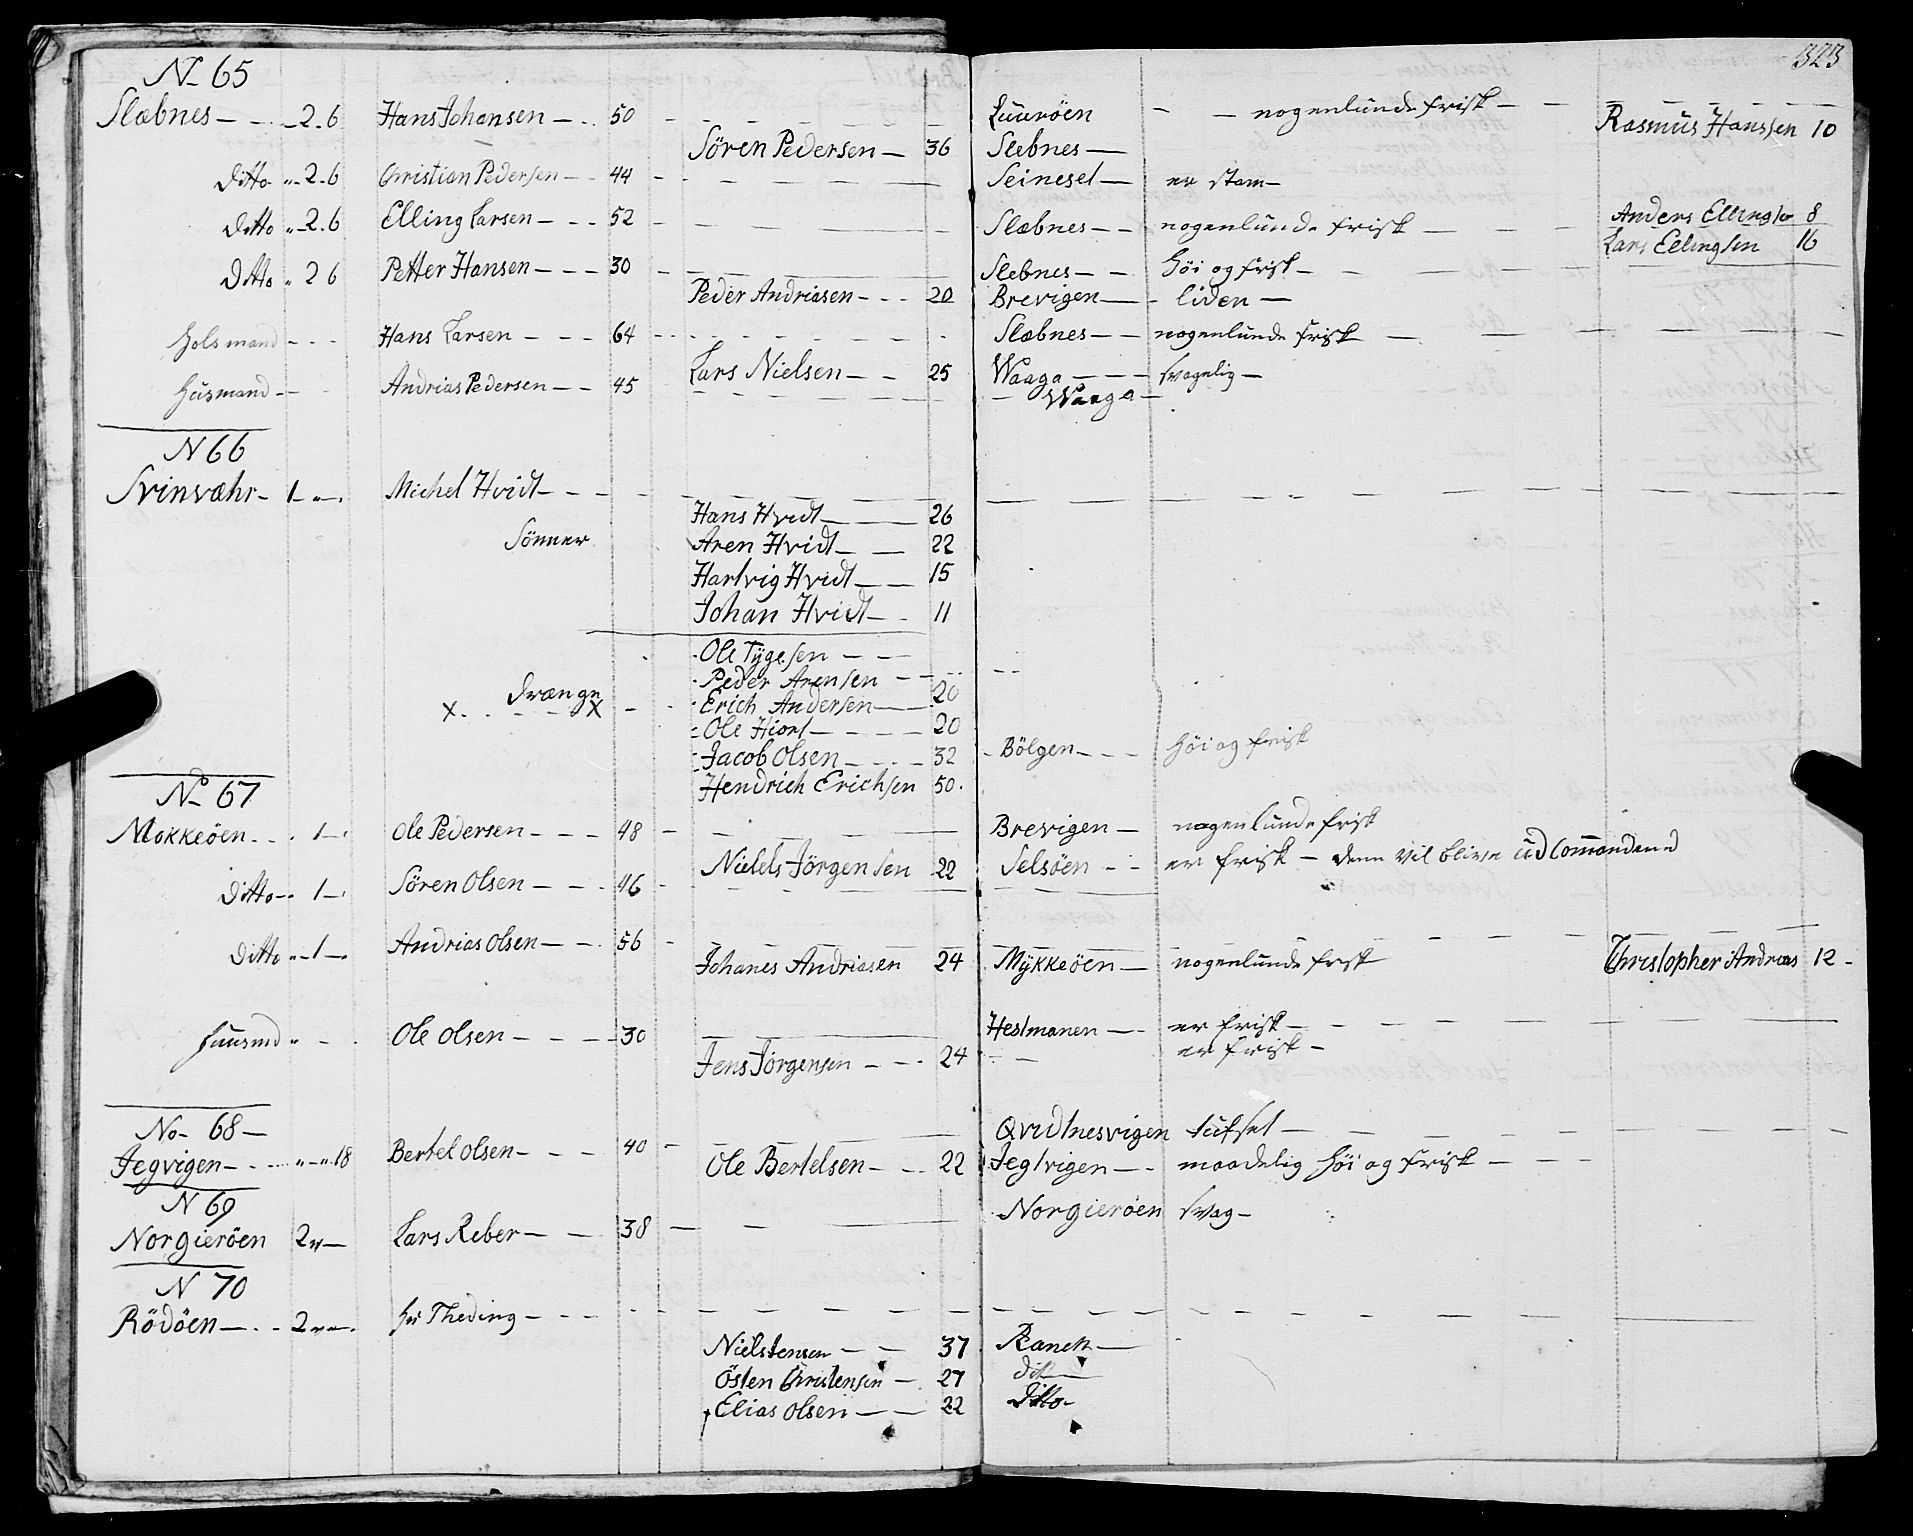 323
N 65
Slæbnes — 2.6 Hans Johansen — 50 Luuröen — nogenlunde frisk — Rasmus Hanssen 10
Sören Pedersen — 36 Slebnes —
Ditto 2.6 Christian Pedersen — 44 Seinesel — er stam —
Ditto 2.6 Elling Larsen — 52 Slæbnes — nogenlunde frisk — Anders Ellingso 8
Lars Ellingsen 16
Ditto 2 6 Petter Hansen — 30 Slebnes — höi og frisk —
Peder Andriasen — 20 Brevigen — liden —
Hans Larsen — 64 Slæbnes — nogenlunde frisk —
Lars Nielsen — 25 Waaga — svagelig —
Huusmand — Andrias Pedersen — 45 Waaga —
N 66
Svinvæhr — 1 — Michel Hvidt —
Hans Hvidt — 26
Sönner Aren Hvidt — 22
Hartvig Hvidt — 15
Johan Hvidt — 11
Ole Tygesen —
Peder Arensen —
Drænge Erich Andersen — 20
x x Ole Hiort — 20
Jacob Olsen — 32 Bölgen — höi og frisk
Hendrich Erichsen 50.
No 67
Mokkeöen 1 — Ole Pedersen — 48 Brevigen — nogenlunde frisk
Nielels Jörgensen 22 Selsöen — er frisk — denne vil blive udCommandered
Ditto — 1 — Sören Olsen — 46
Ditto — 1 — Andrias Olsen — 56
Johanes Andriasen 24 Mykkeöen — nogenlunde frisk Christopher Andrias 12 -
Huusmd Ole Olsen — 30 Hestmanen — er frisk —
Jens Jörgensen — 24 er frisk —
No 68 —
Jegvigen — 18 Bertel Olsen — 40 Qvidtnesvigen tufset —
Ole Bertelsen — 22 Jegtvigen — maadelig höi og frisk —
N 69
Norgieröen 2 — Lars Reber — 38 Norgieröen svag —
N 70
Rödöen — 2 — Hr Theding —
Niels Jensen — 37 Ranen —
Östen Christensen — 27 Dito
Elias Olsen — 22 Ditto